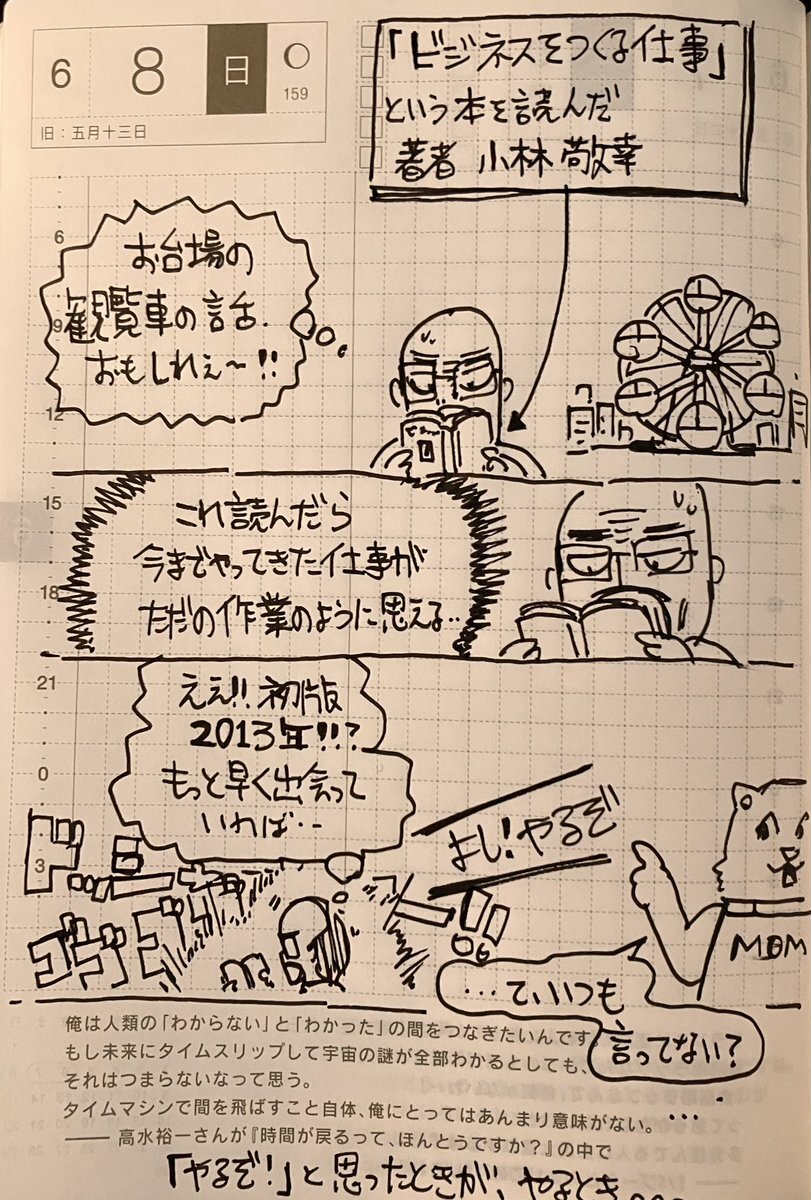 6
8
日
159
旧：五月十三日
「ビジネスをつくる仕事」
という本を読んだ
著者 小林敬幸
お台場の
観覧車の話、
おもしれぇ〜!!
6
9
12
これ読んだら
今までやってきた仕事が
ただの作業のように思える‥
15
18
ええ!!初版
2013年!!?
もっと早く出会って
いれば‥
21
0
3
よし！やるぞ
MOM
…て、いつも
言ってない？
…
俺は人類の「わからない」と「わかった」の間をつなぎたいんです。
もし未来にタイムスリップして宇宙の謎が全部わかるとしても、
それはつまらないなって思う。
タイムマシンで間を飛ばすこと自体、俺にとってはあんまり意味がない。
―― 高水裕一さんが『時間が戻るって、ほんとうですか？』の中で
「やるぞ！」と思ったときが、やるとき…